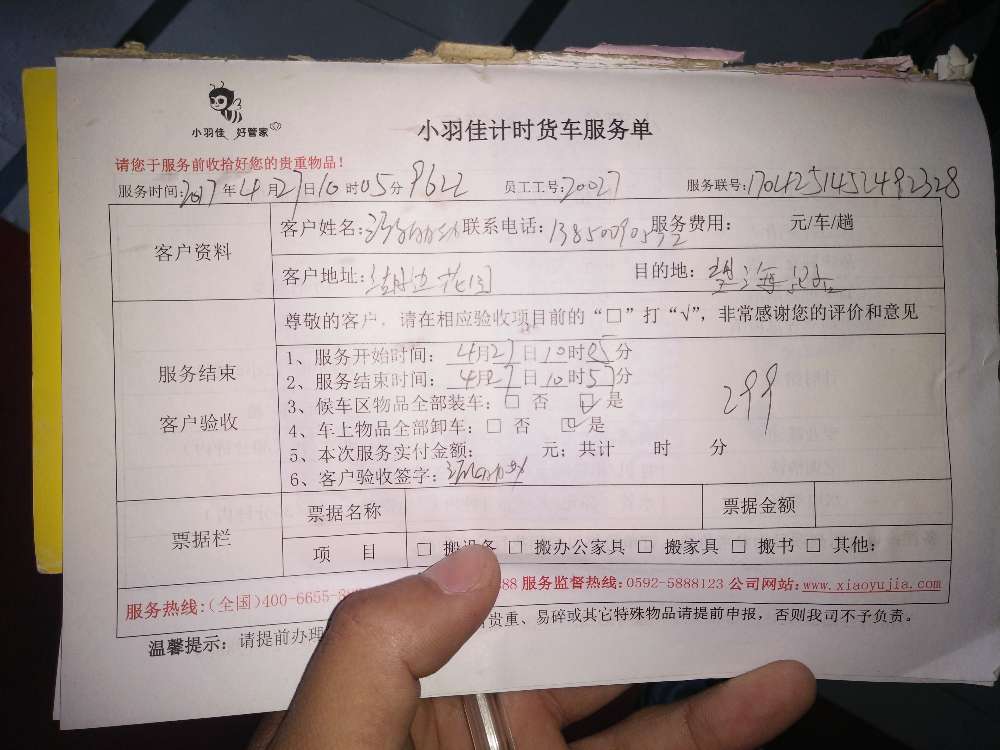 小羽佳 好管家
小羽佳计时货车服务单
请您于服务前收拾好您的贵重物品！
服务时间:2017年4月27日10时05分 9622 员工工号:20027 服务联号:
客户资料
客户姓名: 联系电话: 服务费用: 元/车/趟
客户地址:湖边花园 目的地:
尊敬的客户，请在相应验收项目前的“□”打“√”，非常感谢您的评价和意见
服务结束
客户验收
1、服务开始时间: 4月27日10时05分
2、服务结束时间: 4月27日10时57分
3、候车区物品全部装车: □ 否 ☑ 是
4、车上物品全部卸车: □ 否 ☑ 是
299
5、本次服务实付金额: 元; 共计 时 分
6、客户验收签字:
票据栏
票据名称 票据金额
项 目 □ 搬设备 □ 搬办公家具 □ 搬家具 □ 搬书 □ 其他:
服务热线:(全国)400-6655-8 88 服务监督热线:0592-5888123 公司网站:www.xiaoyujia.com
温馨提示: 请提前办理 贵重、易碎或其它特殊物品请提前申报，否则我司不予负责。